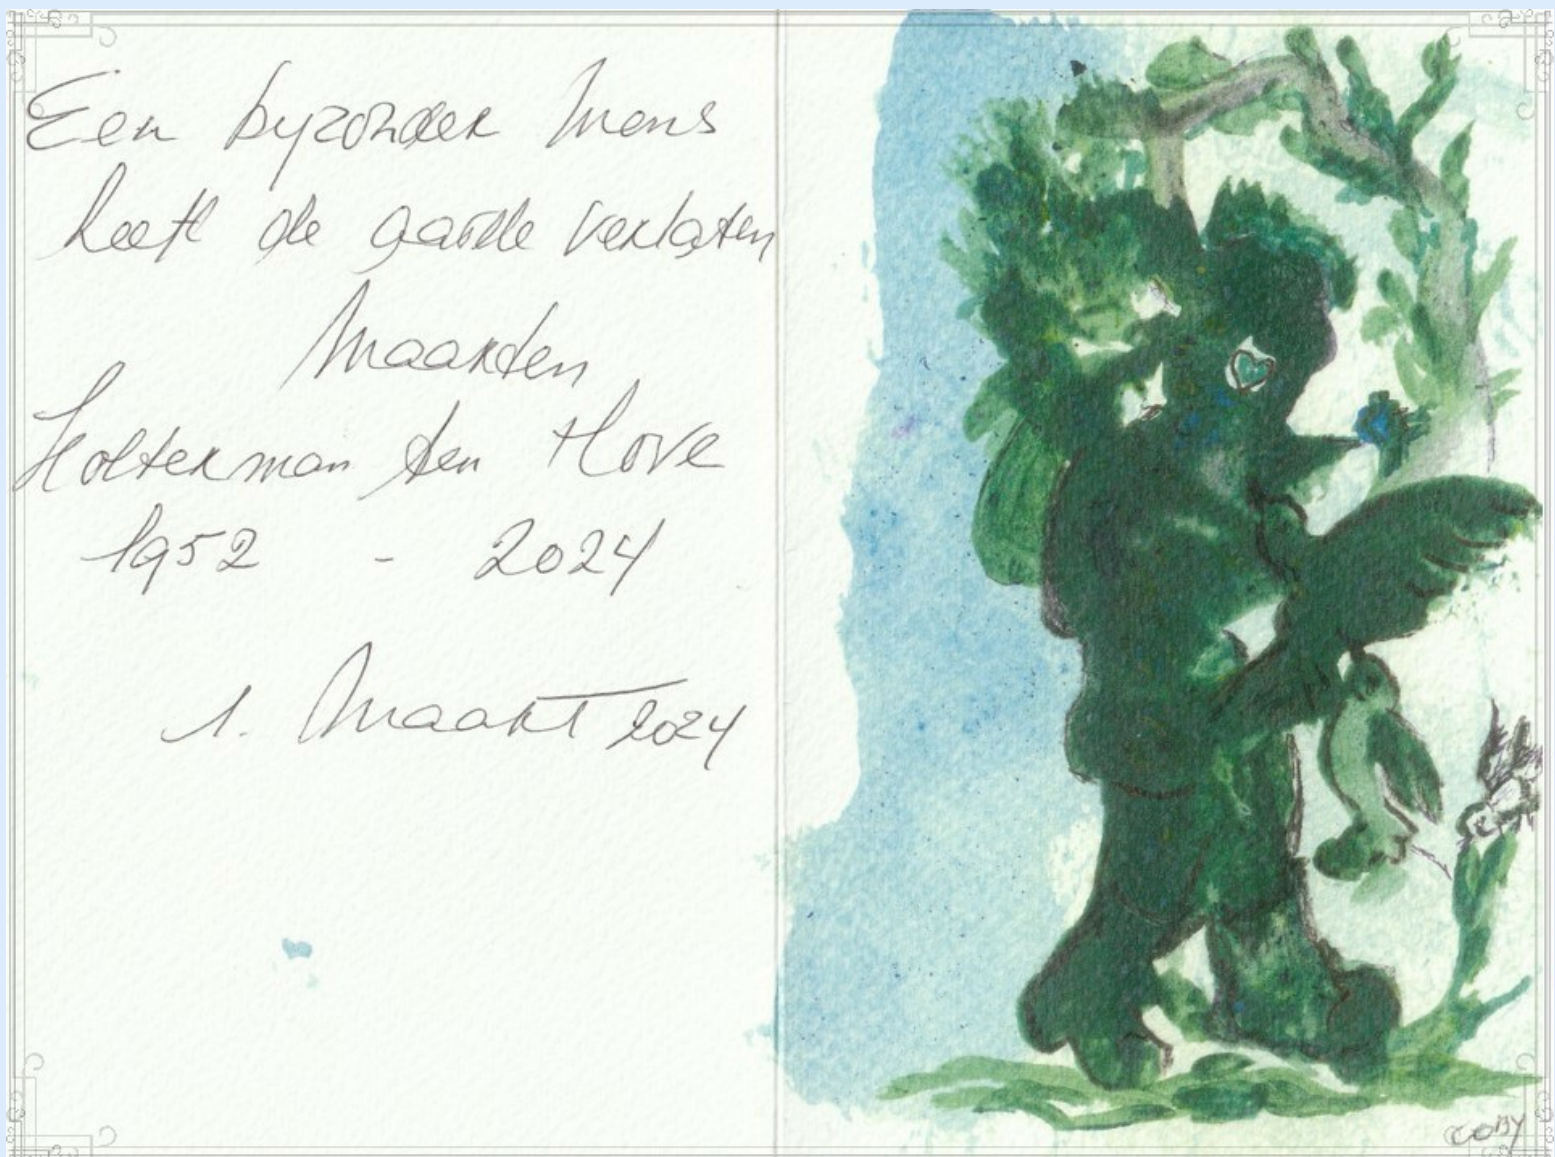 Een byzonder mens
heeft de aarde verlaten
Maarten
Holterman ten Hove
1952 - 2024
1. Maart 2024
COBY